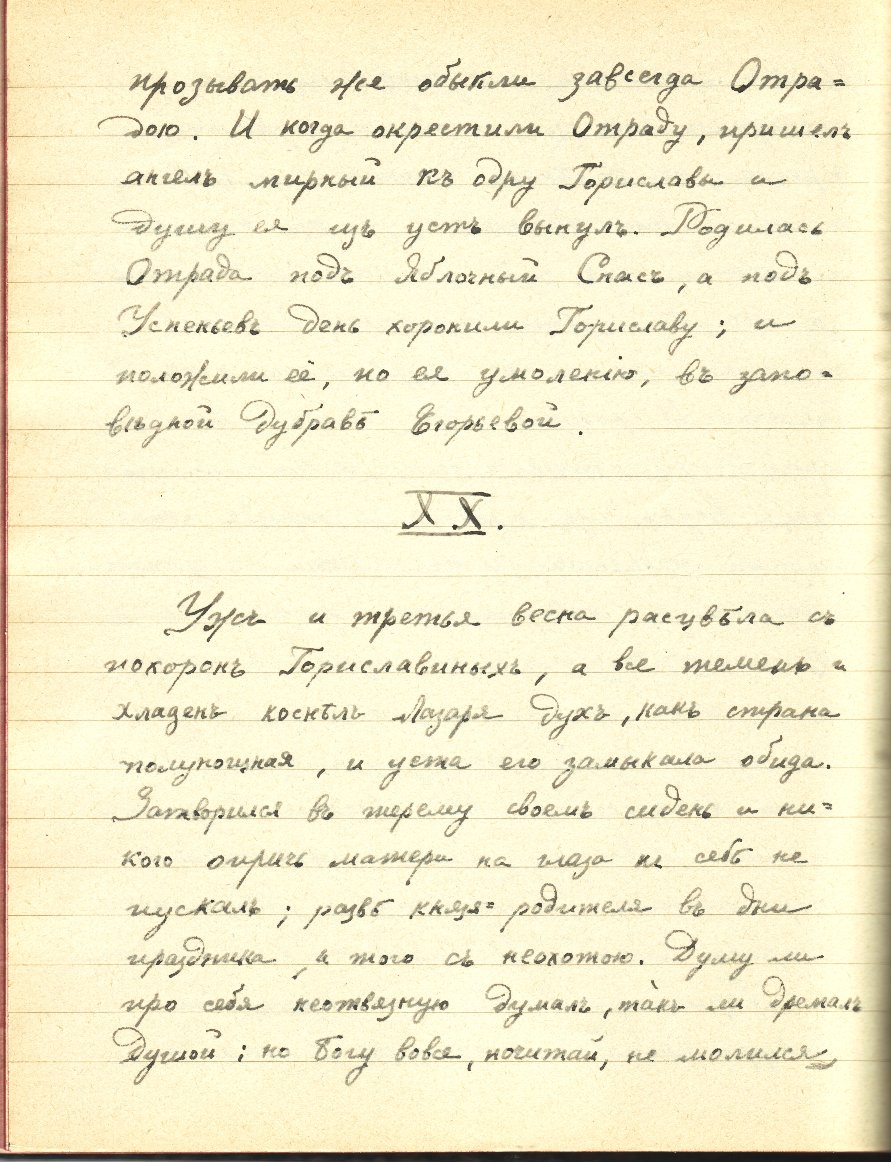 прозывать же обыкли завсегда Отра=
дою. И когда окрестили Отраду, пришелъ
ангелъ мирный къ одру Гориславы и
душу ея изъ устъ вынулъ. Родилась
Отрада подъ Яблочный Спасъ, а подъ
Успеньевъ день хоронили Гориславу; и
положили её, по ея умоленію, въ запо=
вѣдной дубравѣ Егорьевой.
XX.
Ужъ и третья весна расцвѣла съ
похоронъ Гориславиныхъ, а все теменъ и
хладенъ коснѣлъ Лазаря духъ, какъ страна
полунощная, и уста его замыкала обида.
Затворился въ терему своемъ сиденъ и ни=
кого опричь матери на глаза къ себѣ не
пускалъ; развѣ князя=родителя въ дни
праздника, и того съ неохотою. Думу ли
про себя неотвязную думалъ, та́къ ли дремалъ
душой; но Богу вовсе, почитай, не молился